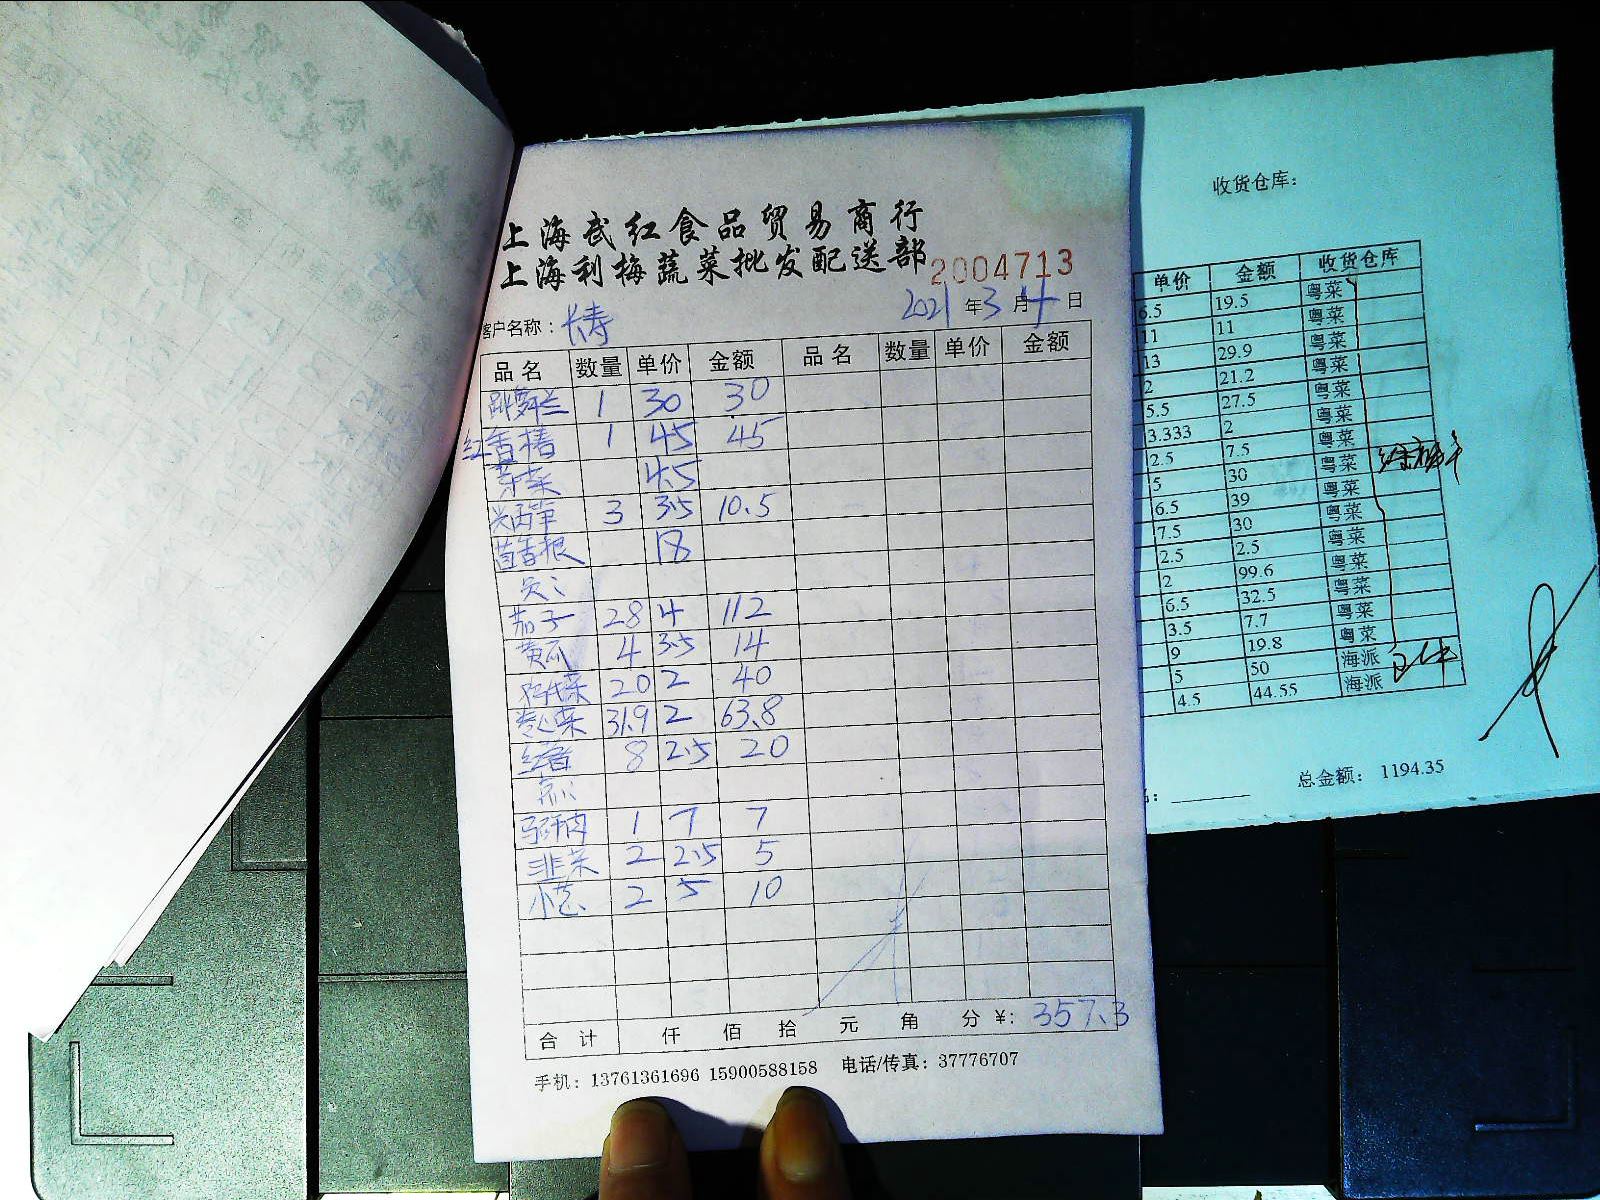 上海武红食品贸易商行
上海利梅蔬菜批发配送部 2004713
客户名称: 长寿 2021 年 3 月 4 日
品名 数量 单价 金额 品名 数量 单价 金额
跳舞兰 1 30 30
红香椿 1 45 45
芽菜 4.5
3 3.5 10.5
茴香根 18
茄子 28 4 112
黄瓜 4 3.5 14
20 2 40
卷心菜 31.9 2 63.8
红薯 8 2.5 20
马蹄肉 1 7 7
韭菜 2 2.5 5
小葱 2 5 10
合计 仟 佰 拾 元 角 分 ¥: 357.3
手机: 13761361696 15900588158 电话/传真: 37776707
收货仓库:
单价 金额 收货仓库
6.5 19.5 粤菜
11 11 粤菜
13 29.9 粤菜
2 21.2 粤菜
5.5 27.5 粤菜
3.333 2 粤菜
2.5 7.5 粤菜
5 30 粤菜
6.5 39 粤菜
7.5 30 粤菜
2.5 2.5 粤菜
2 99.6 粤菜
6.5 32.5 粤菜
3.5 7.7 粤菜
9 19.8 粤菜
5 50 海派
4.5 44.55 海派
总金额: 1194.35